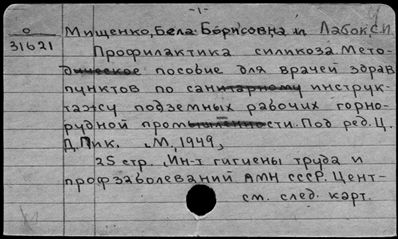 -1-
о
31621
Мищенко, Бела Борисовна и Лабок С.И.
Профилактика силикоза. Мето-
дическое пособие для врачей здрав
пунктов по санитарному инструк-
тажу подземных рабочих горно-
рудной промышленности. Под ред. Ц.
Д. Пик. М., 1949,
25 стр. Ин-т гигиены труда и
профзаболеваний АМН СССР. Цент-
см. след. карт.